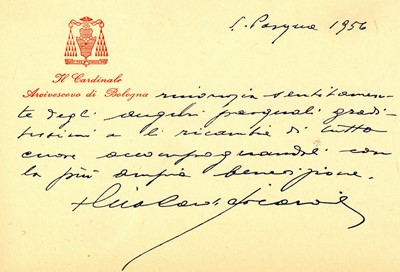 S. Pasqua 1956
Il Cardinale
Arcivescovo di Bologna
ringrazia sentitamen-
te degli auguri pasquali gradi-
tissimi e li ricambia di tutto
cuore accompagnandoli con
la più ampia benedizione.